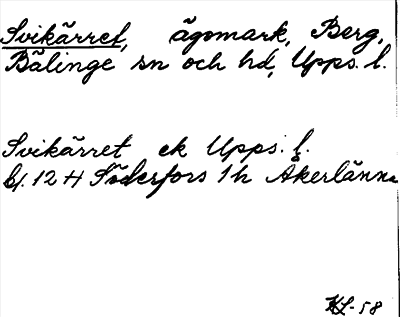 Svikärret, ägomark, Berg,
Bälinge sn och hd, Upps. l.
Svikärret ek Upps. l.
bl. 12 H Söderfors 1h Åkerlänna
KL-58